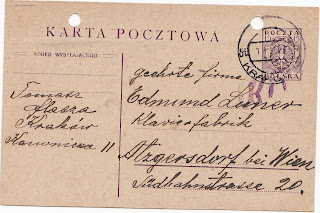 KARTA POCZTOWA
POCZTA
POLSKA
KRAK
ADRES WYSYŁAJĄCEGO
Tomasz
Flasza
Kraków
Kanonicka 11
geehrte firma
Edmund Luner
Klavierfabrik
Atzgersdorf bei Wien
Südbahnstrasse 20.